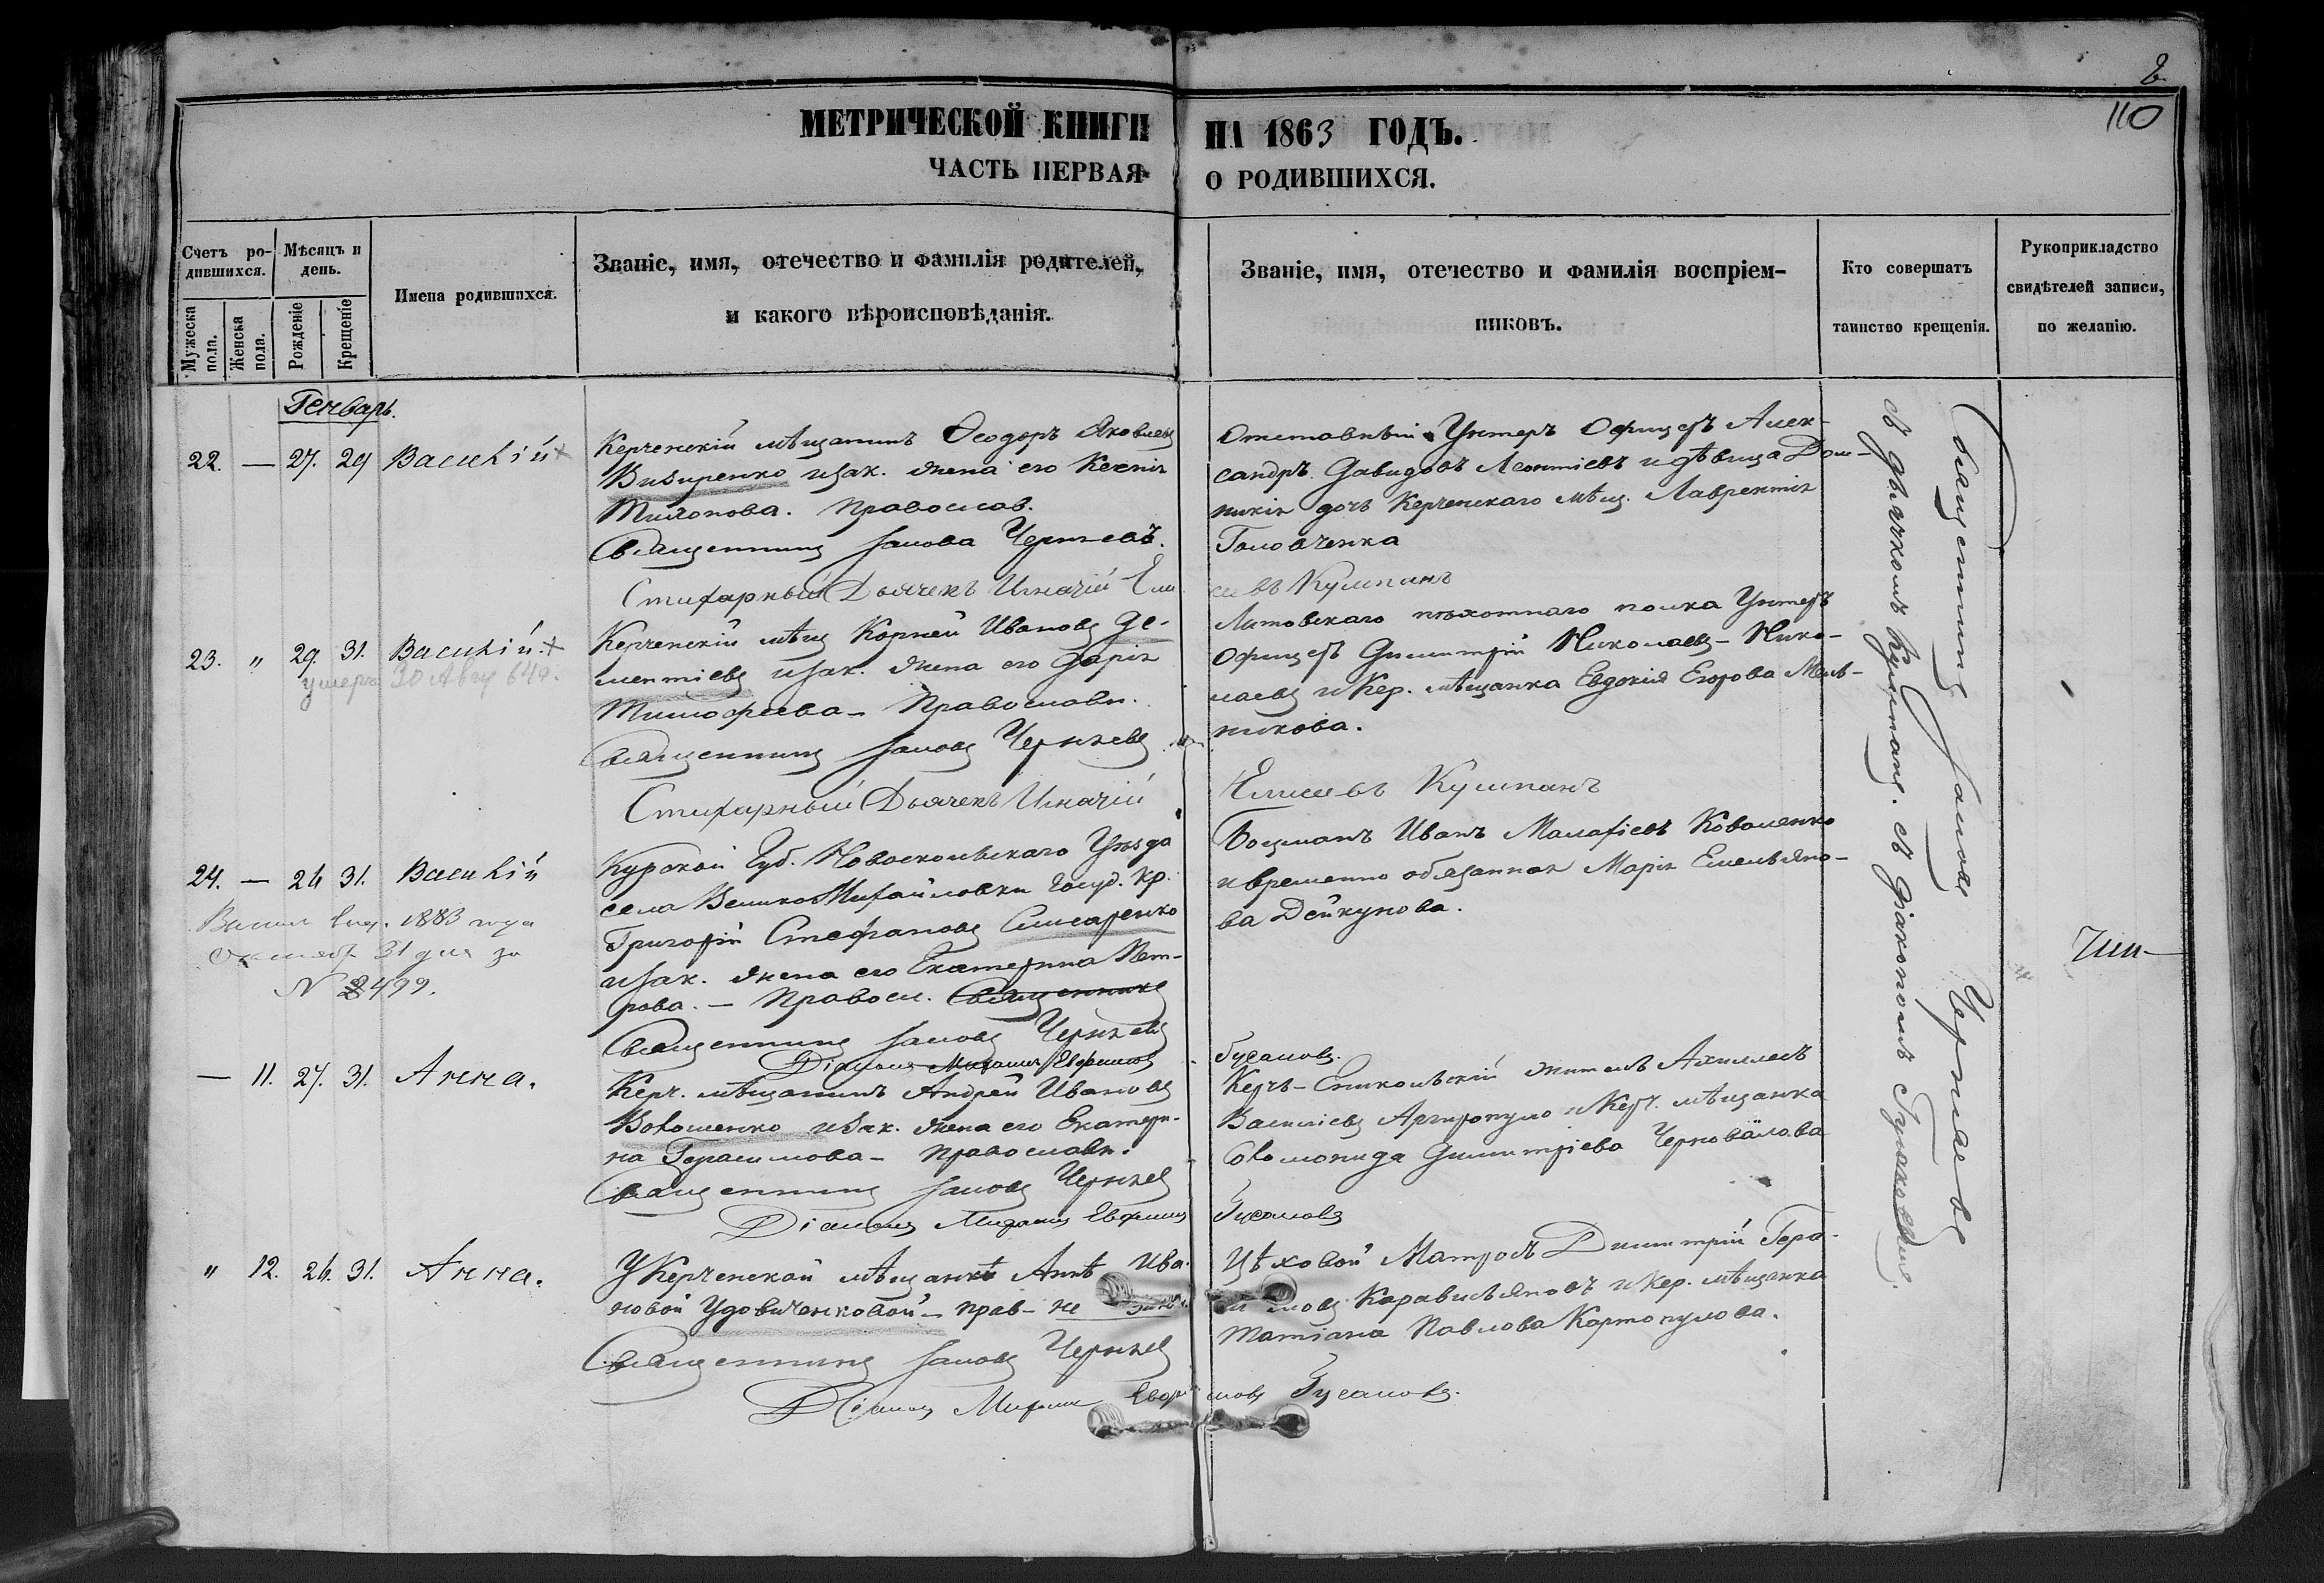 2.
110
МЕТРИЧЕСКОЙ КНИГИ НА 1863 ГОДЪ.
ЧАСТЬ ПЕРВАЯ О РОДИВШИХСЯ.
Счетъ ро-
дившихся.
Мужеска
пола.
Женска
пола.
Мѣсяцъ и
день.
Рожденіе
Крещеніе
Имена родившихся.
Званіе, имя, отечество и фамилія родителей,
и какого вѣроисповѣданія.
Званіе, имя, отечество и фамилія воспріем-
никовъ.
Кто совершатъ
таинство крещенія.
Рукоприкладство
свидѣтелей записи,
по желанію.
Генварь.
22. — 27. 29 Василій
Керченскій мѣщанинъ Ѳеодоръ Яковлевъ
изак. жена его Ксенія
Православ.
Священникъ Іаковъ Черняевъ.
Стихарный Дьячекъ Игнатій Ели
Отставный Унтеръ Офицеръ Алек-
сандръ Давидовъ Леонтіевъ и дѣвица Дом-
никія дочь Керченскаго мѣщ. Лаврентія
Головченка
сеевъ Кушпанъ
23. " 29. 31. Василій
умеръ 30 Авгу 64г.
Керченскій мѣщ Корней Ивановъ Де-
ментіевъ изак. жена его Дарія
Тимофеева – Православн.
Священникъ Іаковъ Черняевъ
Стихарный Дьячекъ Игнатій
Литовскаго пѣхотнаго полка Унтеръ
Офицеръ Димитрій Николаевъ – Нико-
лаевъ и Кер. мѣщанка Евдокія Егорова Мель-
никова.
Елисеевъ Кушпанъ
24. — 26 31. Василій
1883 года
31 дня за
N 2499.
Курской Губ. Новооскольскаго Уѣзда
села ВеликоМихайловки Госуд. кр.
Григорій Стефановъ Слисаренко
изак. жена его Екатерина Пет-
рова. – Правосл. Священникъ
Священникъ Іаковъ Черняевъ
Діаконъ Михаилъ Евфимовъ
Боцманъ Иванъ Малафіевъ Коваленко
и временно обязанная Марія Емельяно-
ва Дейкунова.
Гусаковъ.
— 11. 27. 31. Анна.
Керч. мѣщанинъ Андрей Ивановъ
Волошенко изак. жена его Екатери-
на Герасимова – Православн.
Священникъ Іаковъ Черняевъ
Діаконъ Михаилъ Евфимовъ
Керчь-Еникольскій житель Ахиллесъ
Василіевъ Аргиропуло и Керч. мѣщанка
Соломонида Димитріева Черновалова
Гусаковъ
" 12. 26. 31. Анна.
У Керченской мѣщанки Анны Ива-
новой Удовиченковой – прав – не
Священникъ Іаковъ Черняевъ
Діаконъ Михаилъ Евфимовъ Гусаковъ.
Цѣховой Матросъ Димитрій Гера-
симовъ Карависьяновъ и Кер. мѣщанка
Татіана Павлова Картопулова.
Священникъ Іаковъ Черняевъ
съ дьячкомъ Кушпанъ. съ діакономъ Гусаковымъ.